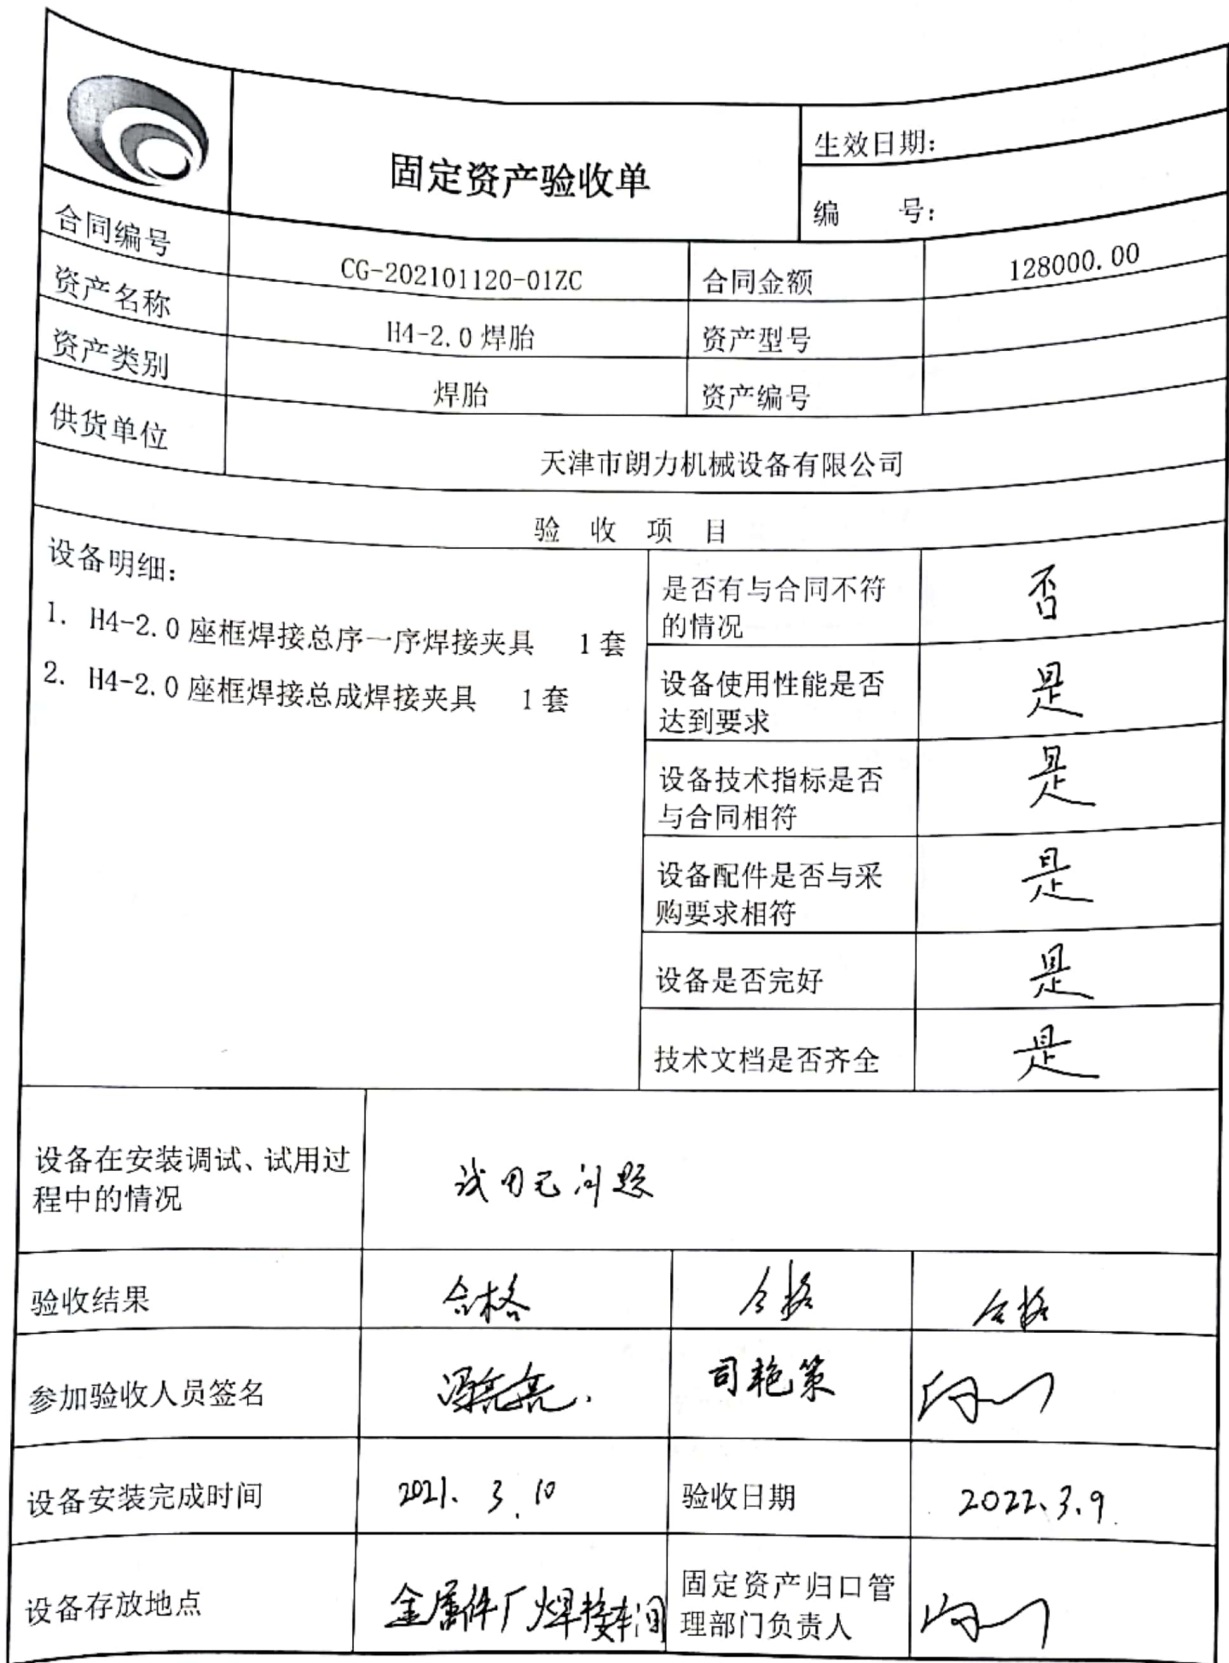 固定资产验收单
生效日期：
编 号：
合同编号
CG-202101120-01ZC
合同金额
128000.00
资产名称
H4-2.0 焊胎
资产型号
资产类别
焊胎
资产编号
供货单位
天津市朗力机械设备有限公司
验 收 项 目
设备明细：
1. H4-2.0 座框焊接总序一序焊接夹具 1 套
2. H4-2.0 座框焊接总成焊接夹具 1 套
是否有与合同不符
的情况
否
设备使用性能是否
达到要求
是
设备技术指标是否
与合同相符
是
设备配件是否与采
购要求相符
是
设备是否完好
是
技术文档是否齐全
是
设备在安装调试、试用过
程中的情况
试用无问题
验收结果
合格
合格
合格
参加验收人员签名
冯亮亮.
司艳策
设备安装完成时间
2021. 3. 10
验收日期
2022.3.9.
设备存放地点
金属件厂焊接车间
固定资产归口管
理部门负责人